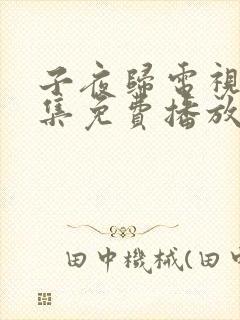 子夜歸電視
集免費播放
田中機械(田中